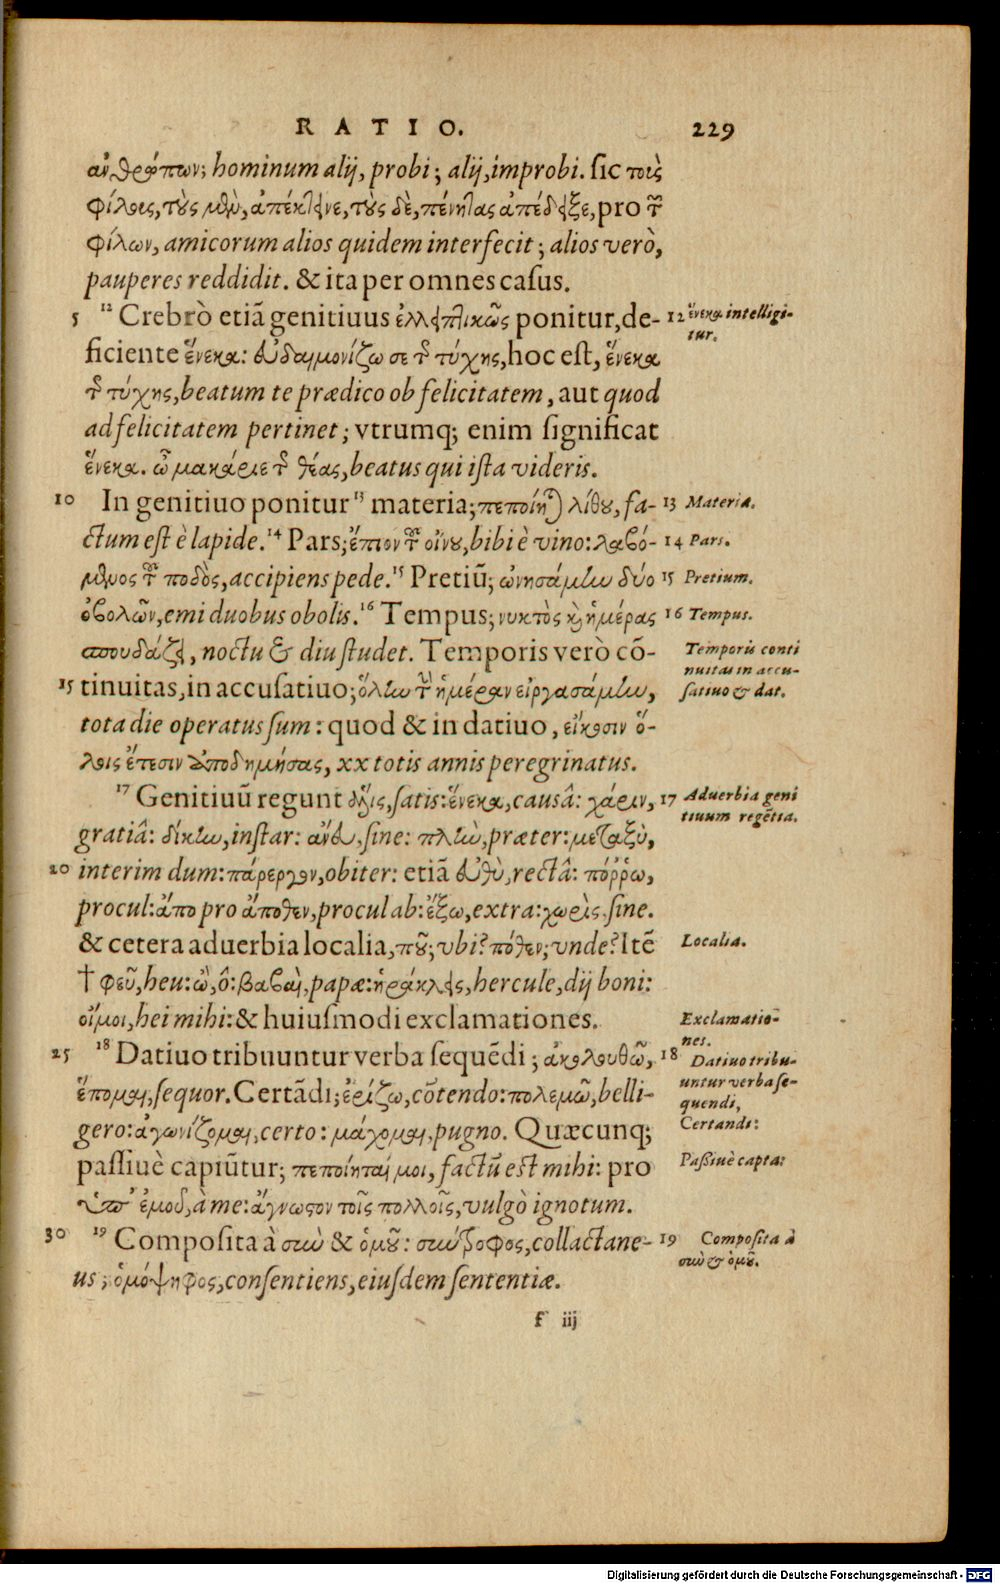 RATIO. 229
ἀνθρώπων; hominum alij, probi; alij, improbi. sic τοὺς
φίλοις, τοὺς μὲν, ἀπέκτεινε, τοὺς δὲ, πένητας ἀπέδειξε, pro τῶν
φίλων, amicorum alios quidem interfecit; alios verò,
pauperes reddidit. & ita per omnes casus.
5 12 Crebrò etiā genitiuus ἐλλειπτικῶς ponitur, de-
12 ἕνεκα intelligi-
tur.
ficiente ἕνεκα: εὐδαιμονίζω σε τῆς τύχης, hoc est, ἕνεκα
τῆς τύχης, beatum te prædico ob felicitatem, aut quod
ad felicitatem pertinet; vtrumq; enim significat
ἕνεκα. ὦ μακάριε τῆς θέας, beatus qui ista videris.
10 In genitiuo ponitur 13 materia; πεποίηται λίθου, fa-
13 Materia.
ctum est è lapide. 14 Pars; ἔπιον τοῦ οἴνου, bibi è vino: λαβό-
14 Pars.
μενος τοῦ ποδὸς, accipiens pede. 15 Pretiū; ὠνησάμην δύο
15 Pretium.
ὀβολῶν, emi duobus obolis. 16 Tempus; νυκτὸς καὶ ἡμέρας
16 Tempus.
σπουδάζει, noctu & diu studet. Temporis verò cō-
Temporis conti
nuitas in accu-
satiuo & dat.
15 tinuitas, in accusatiuo; ὅλην τὴν ἡμέραν εἰργασάμην,
tota die operatus sum: quod & in datiuo, εἴκοσιν ὅ-
λοις ἔτεσιν ἀποδημήσας, xx totis annis peregrinatus.
17 Genitiuū regunt ἅλις, satis: ἕνεκα, causâ: χάριν,
17 Aduerbia geni
tiuum regētia.
gratiâ: δίκην, instar: ἄνευ, sine: πλὴν, præter: μεταξὺ,
20 interim dum: πάρεργον, obiter: etiā εὐθὺ, rectâ: πόῤῥω,
procul: ἄπο pro ἄποθεν, procul ab: ἔξω, extra: χωρὶς, sine.
& cetera aduerbia localia, ποῦ; vbi? πόθεν; vnde? Itē
Localia.
† φεῦ, heu: ὢ, ô: βαβαὶ, papæ: ἡράκλεις, hercule, dij boni:
οἴμοι, hei mihi: & huiusmodi exclamationes.
Exclamatio-
nes.
25 18 Datiuo tribuuntur verba sequēdi; ἀκολουθῶ,
18 Datiuo tribu-
untur verba se-
quendi,
ἕπομαι, sequor. Certādi; ἐρίζω, cōtendo: πολεμῶ, belli-
gero: ἀγωνίζομαι, certo: μάχομαι, pugno. Quæcunq;
Certandi:
passiuè capiūtur; πεποίηταί μοι, factū est mihi: pro
Passiuè capta:
ὑπ' ἐμοῦ, à me: ἄγνωστον τοῖς πολλοῖς, vulgò ignotum.
30 19 Composita à σὺν & ὁμοῦ: σύντροφος, collactane-
19 Composita à
σὺν & ὁμοῦ.
us; ὁμόψηφος, consentiens, eiusdem sententiæ.
f iij
Digitalisierung gefördert durch die Deutsche Forschungsgemeinschaft - DFG